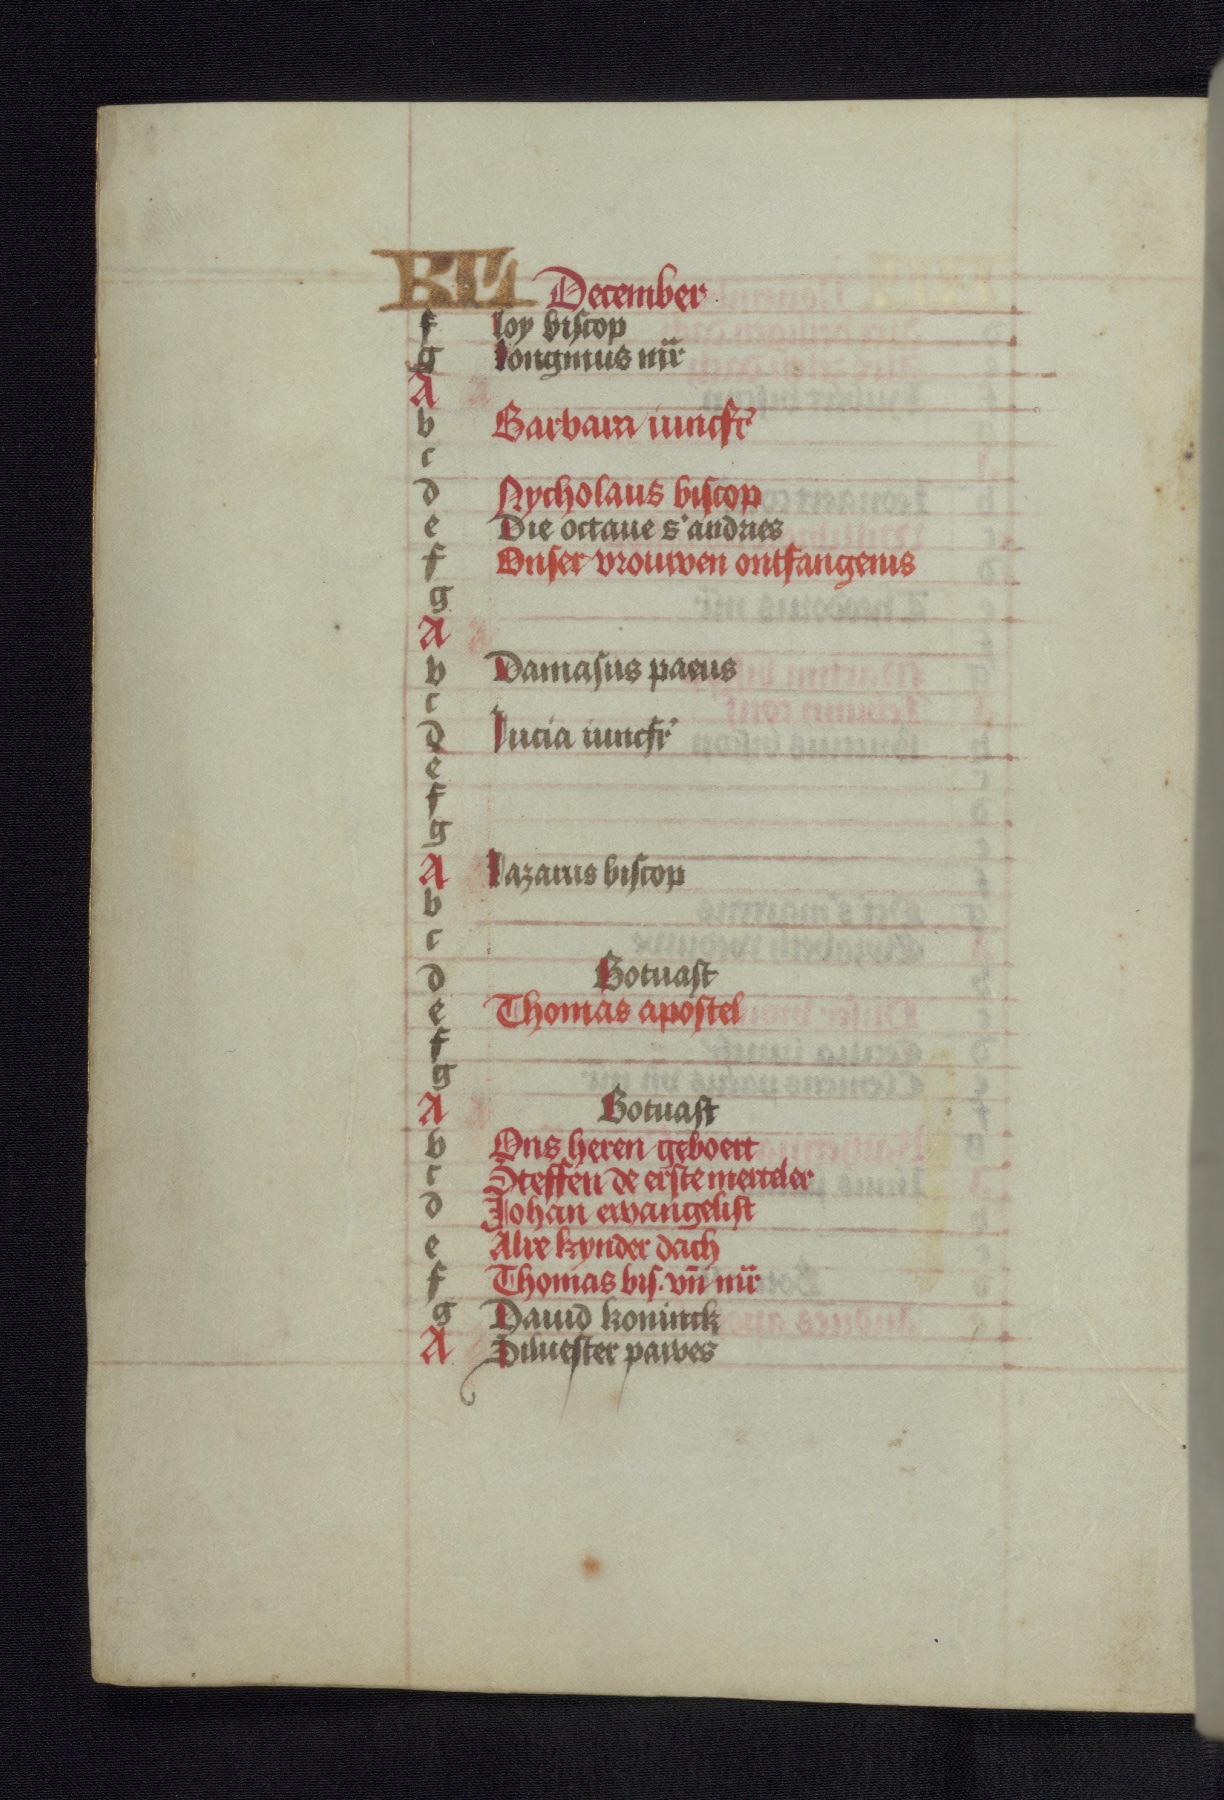 KL December
f loy biscop
g longinus mr̄
A
b Barbara iuncfr̄
c
d Nycholaus biscop
e Die octaue s' andries
f Onser vrouwen ontfangenis
g
A
b Damasus paeus
c
d lucia iuncfr̄
e
f
g
A lazarus biscop
b
c
d Gotvast
e Thomas apostel
f
g
A Gotvast
b Ons heren geboert
c Steffen de erste merteler
d Johan ewangelist
e Alre kynder dach
f Thomas bis. vn̄ mr̄
g Dauid koninck
A Siluester pawes